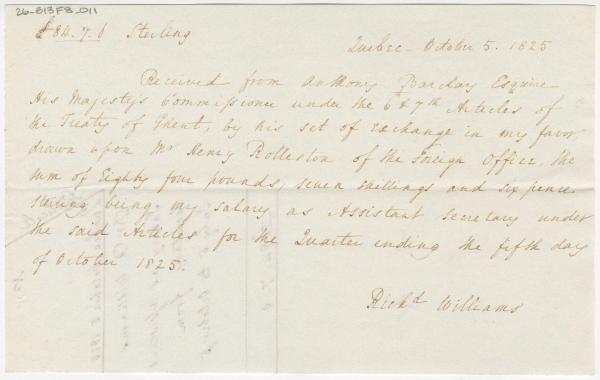 26-B13F8-011
£84.7.6 Sterling
Quebec - October 5. 1825
Received from Anthony Barclay Esquire
His Majestys Commissioner under the 6 & 7th Articles of
the Treaty of Ghent, by his set of exchange in my favor,
drawn upon Mr Henry Rolleston of the Foreign Office, the
sum of Eighty four pounds, seven shillings and six pence
sterling being my salary as Assistant Secretary under
the said Articles for the Quarter ending the fifth day
of October 1825.
Richd Williams